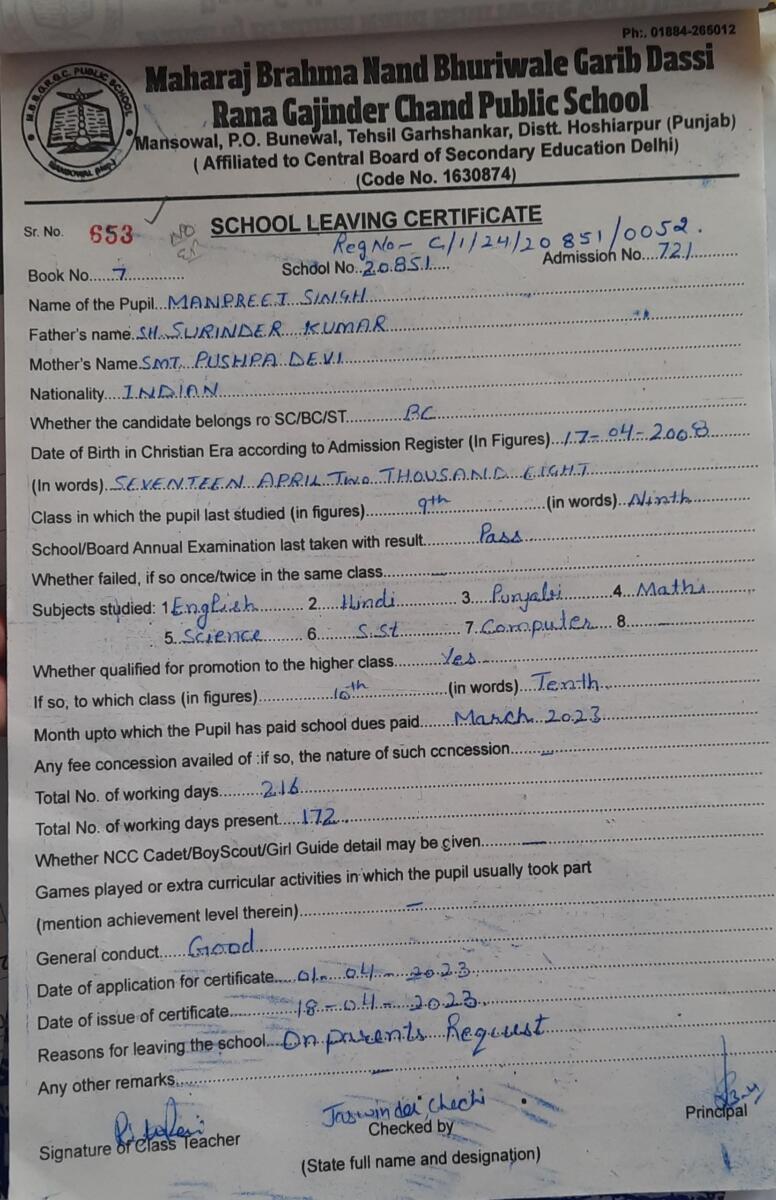 Ph:. 01884-265012
M.B.B.G.R.G.C. PUBLIC SCHOOL
MANSOWAL (HSP.)
Maharaj Brahma Nand Bhuriwale Garib Dassi
Rana Gajinder Chand Public School
Mansowal, P.O. Bunewal, Tehsil Garhshankar, Distt. Hoshiarpur (Punjab)
( Affiliated to Central Board of Secondary Education Delhi)
(Code No. 1630874)
Sr. No. 653
SCHOOL LEAVING CERTIFiCATE
Reg No- G/1/24/20851/0052.
Book No. 7 School No. 20851 Admission No. 721
Name of the Pupil MANPREET SINGH
Father's name SH. SURINDER KUMAR
Mother's Name SMT. PUSHPA DEVI
Nationality INDIAN
Whether the candidate belongs ro SC/BC/ST BC
Date of Birth in Christian Era according to Admission Register (In Figures) 17-04-2008
(In words) SEVENTEEN APRIL TWO THOUSAND EIGHT
Class in which the pupil last studied (in figures) 9th (in words) Ninth
School/Board Annual Examination last taken with result Pass
Whether failed, if so once/twice in the same class —
Subjects studied: 1 English 2. Hindi 3. Punjabi 4. Maths
5. Science 6. S.St 7. Computer 8.
Whether qualified for promotion to the higher class Yes
If so, to which class (in figures) 10th (in words) Tenth
Month upto which the Pupil has paid school dues paid March 2023
Any fee concession availed of :if so, the nature of such ccncession —
Total No. of working days 216
Total No. of working days present 172
Whether NCC Cadet/BoyScout/Girl Guide detail may be given —
Games played or extra curricular activities in which the pupil usually took part
(mention achievement level therein) —
General conduct Good
Date of application for certificate 01-04-2023
Date of issue of certificate 18-04-2023
Reasons for leaving the school On parents Request
Any other remarks —
Jaswinder Chechi
Signature of Class Teacher Checked by Principal
(State full name and designation)